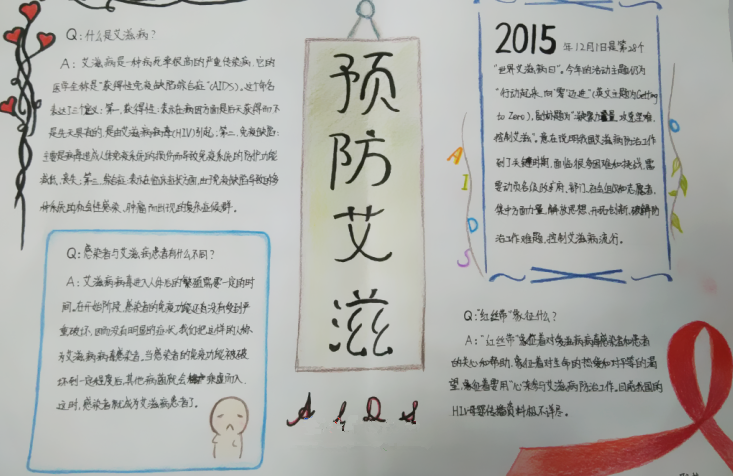 Q:什么是艾滋病?
A:艾滋病是一种病死率很高的严重传染病,它的
医学全称是"获得性免疫缺陷综合征"(AIDS)。这个名
表达了三个意义:第一,获得性:表示在病因方面是后天获得而不
是先天具有的,是由艾滋病病毒(HIV)引起;第二,免疫缺陷:
主要是病毒造成人体免疫系统的损伤而导致免疫系统的防护功能
减低、丧失;第三,综合征:表示在临床症状方面,由于免疫缺陷导致的各
种系统的机会性感染、肿瘤而出现的复杂症候群。
Q:感染者与艾滋病患者有什么不同?
A:艾滋病病毒进入人体后的繁殖需要一定的时
间。在开始阶段,感染者的免疫功能还没有受到严
重破坏,因而没有明显的症状,我们把这样的人称
为艾滋病病毒感染者。当感染者的免疫功能被破
坏到一定程度后,其他病菌就会乘虚而入,
这时,感染者就成为艾滋病患者了。
预
防
艾
滋
A I D S
2015 年12月1日是第28个
"世界艾滋病日"。今年的活动主题仍为
"行动起来,向'零'迈进"(英文主题为Getting
to Zero),副标题为"凝聚力量,攻坚克难,
控制艾滋"。意在说明我国艾滋病防治工作
到了关键时期,面临很多困难和挑战,需
要动员各级政府、部门、社会组织和志愿者,
集中方面力量,解放思想,开拓创新,破解防
治工作难题,控制艾滋病流行。
A
I
D
S
Q:"红丝带"象征什么?
A:"红丝带"象征着对艾滋病病毒感染者和患者
的关心和帮助,象征着对生命的热爱和对平等的渴
望,象征着要用"心"来参与艾滋病防治工作。目前我国的
HIV母婴传播资料尚不详尽。